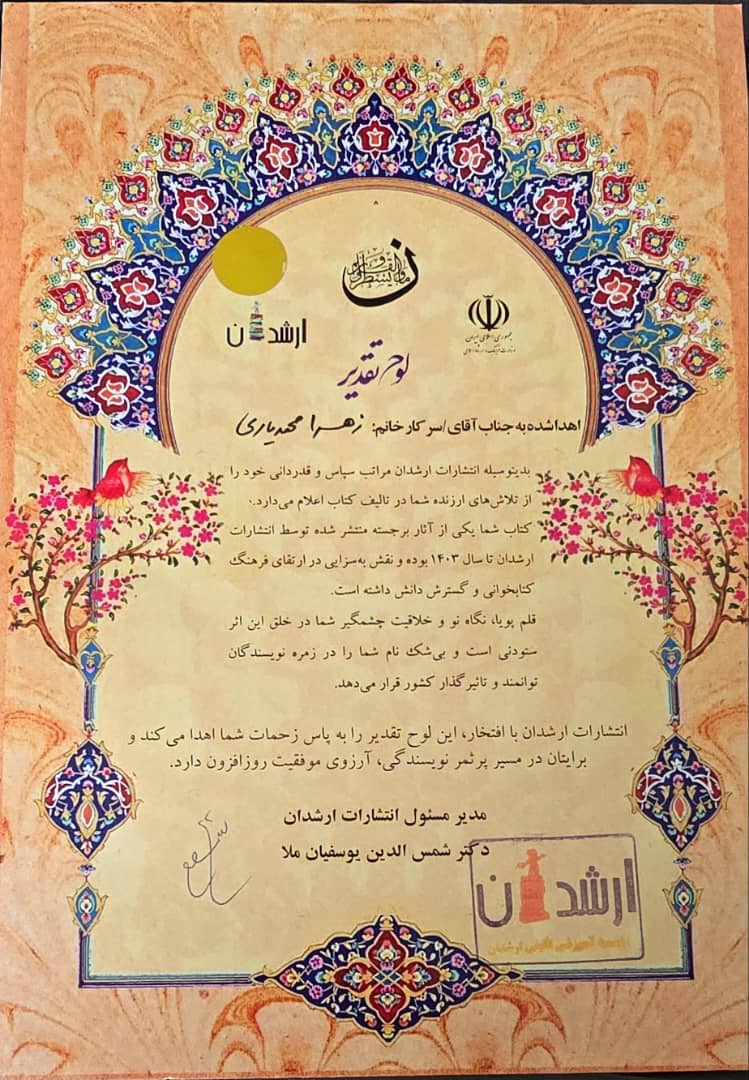 ن والقلم و ما یسطرون
ارشدان
جمهوری اسلامی ایران
وزارت فرهنگ و ارشاد اسلامی
لوح تقدیر
اهدا شده به جناب آقای/سرکار خانم: زهرا محمدیاری
بدینوسیله انتشارات ارشدان مراتب سپاس و قدردانی خود را
از تلاش‌های ارزنده شما در تالیف کتاب اعلام می‌دارد.
کتاب شما یکی از آثار برجسته منتشر شده توسط انتشارات
ارشدان تا سال ۱۴۰۳ بوده و نقش به‌سزایی در ارتقای فرهنگ
کتابخوانی و گسترش دانش داشته است.
قلم پویا، نگاه نو و خلاقیت چشمگیر شما در خلق این اثر
ستودنی است و بی‌شک نام شما را در زمره نویسندگان
توانمند و تاثیرگذار کشور قرار می‌دهد.
انتشارات ارشدان با افتخار، این لوح تقدیر را به پاس زحمات شما اهدا می‌کند و
برایتان در مسیر پرثمر نویسندگی، آرزوی موفقیت روزافزون دارد.
مدیر مسئول انتشارات ارشدان
دکتر شمس الدین یوسفیان ملا
ارشدان
موسسه آموزشی تالیفی ارشدان